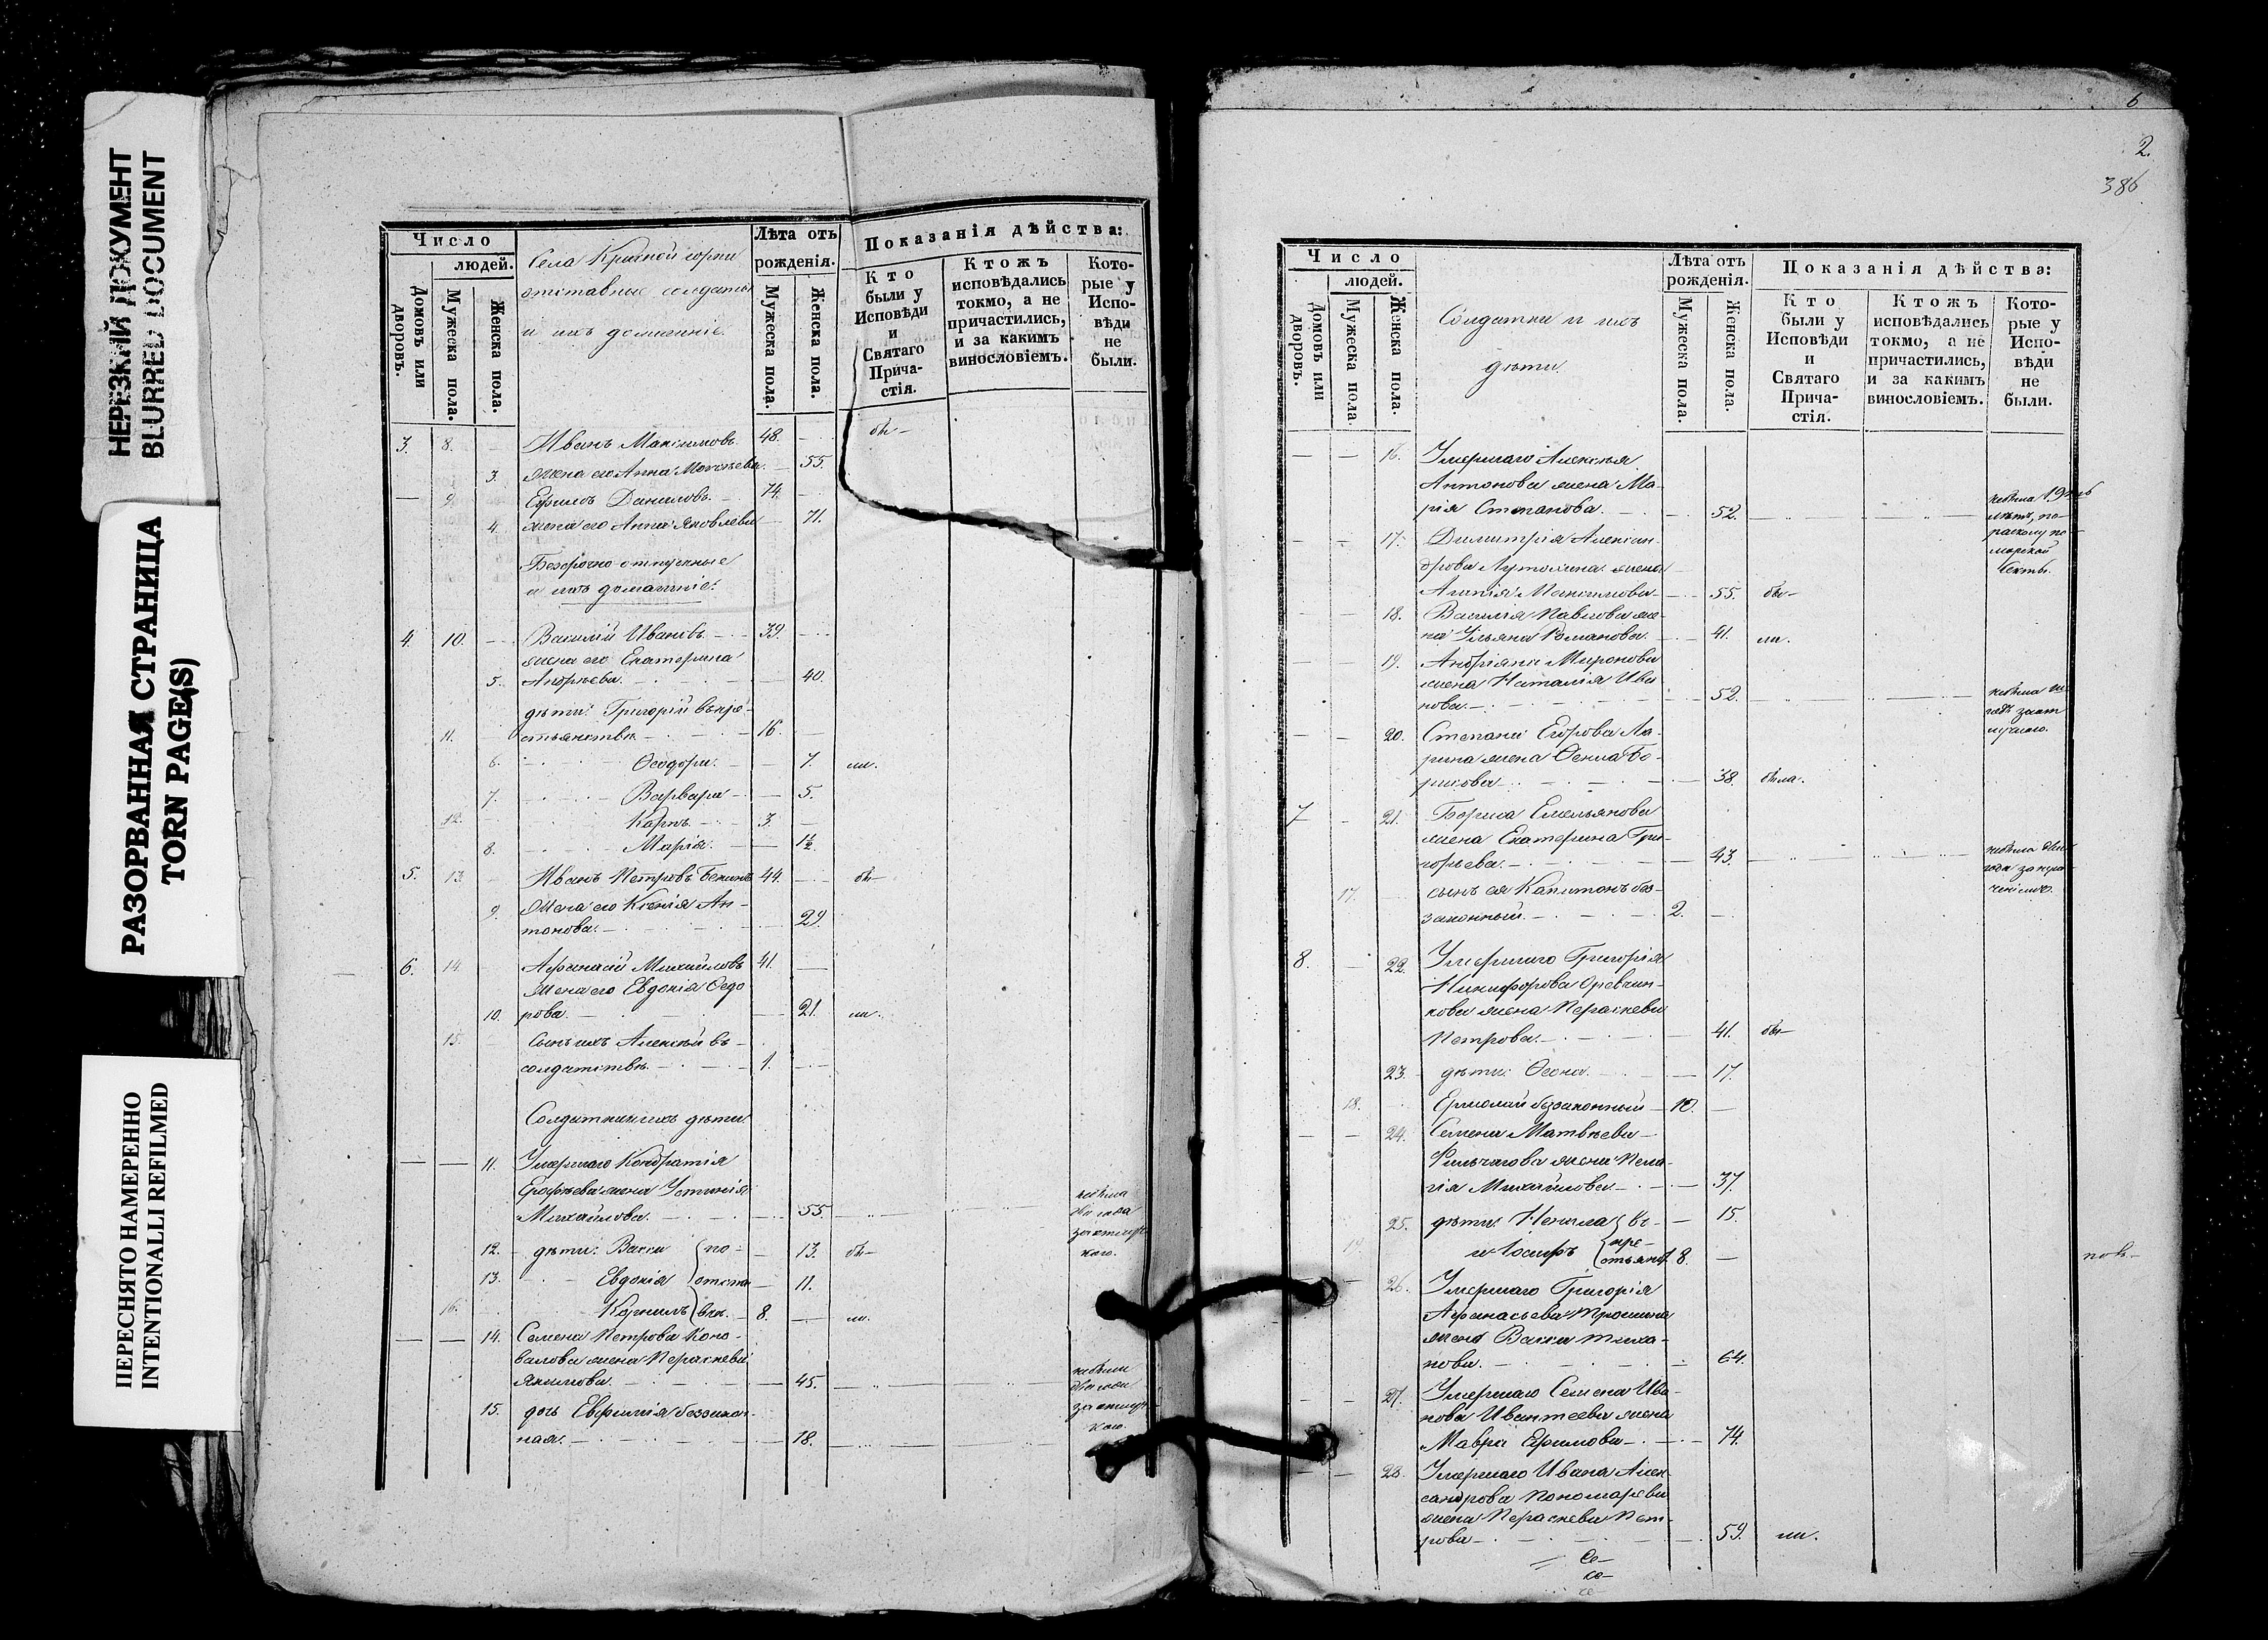 НЕРЕЗКИЙ ДОКУМЕНТ
BLURRED DOCUMENT
РАЗОРВАННАЯ СТРАНИЦА
TORN PAGE(S)
ПЕРЕСНЯТО НАМЕРЕННО
INTENTIONALLI REFILMED
Число
людей.
Домовъ или дворовъ.
Мужеска пола.
Женска пола.
Села Красной горки
отставные солдаты
и ихъ домашніе.
Лѣта отъ рожденія.
Мужеска пола.
Женска пола.
Показанія дѣйства:
Кто были у Исповѣди и Святаго Прича-стія.
Ктожъ исповѣдались токмо, а не причастились, и за какимъ винословіемъ.
Кото-рые у Испо-вѣди не были.
3. 8. — Иванъ Максимовъ. 48. — бы—
3. жена его Анна Моисѣева. — 55.
— 9. Ефимъ Даниловъ. — 74. —
4. жена его Анна Яковлева — 71.
Безсрочно отпускные
и ихъ домашніе:
4. 10. — Василій Ивановъ — 39. —
жена его Екатерина
5. Андреева. — 40.
дѣти: Григорій въ кре-
11. стьянствѣ — 16. —
6. Ѳеодора. — 7. ли.
7. Варвара — 5.
12. Карпъ. — 3. —
8. Марія. — 1½.
5. 13. — Иванъ Петровъ 44. — бы—
9. жена его Ксенія Ан-
тонова. — 29.
6. 14. — Афанасій Михайловъ 41. —
жена его Евдокія Ѳедо
10. рова. — 21. ли.
15. Сынъ ихъ Алексѣй въ
солдатствѣ. — 1. —
Солдатки и ихъ дѣти.
— — 11. Умершаго Кондратія
Ерофѣева жена Устинія
Михайлова. — 55.
12. дѣти: Васса по- — 13. бы—
13. Евдокія — 11.
16. Корнилъ 8. — ли.
— — 14. Семена Петрова Коно-
валова жена Параскева
Якимова. — 45.
15. дочь Евфимія беззакон-
ная. — 18.
6
2.
386
Число
людей.
Домовъ или дворовъ.
Мужеска пола
Женска пола.
Солдатки и ихъ
дѣти.
Лѣта отъ рожденія.
Мужеска пола.
Женска пола.
Показанія дѣйства:
Кто были у Исповѣди и Святаго Прича-стія.
Ктожъ исповѣдались токмо, а не причастились, и за какимъ винословіемъ.
Кото-рые у Испо-вѣди не были.
— — 16. Умершаго Алексѣя
Антонова жена Ма-
рія Степанова. — 52.
— — 17. Димитрія Алексан-
дрова жена
Максимова — 55. бы—
— — 18. Василія Павлова же-
на Ульяна Романова. — 41. ли.
— — 19. Андріана Миронова
жена Наталія Ива
нова. — 52.
— — 20. Степана Егорова Ла-
рина жена Ѳекла Бо-
рисова — 38. была.
7 — 21. Бориса Емельянова
жена Екатерина Гри-
горьева. — 43.
17. сынъ ея Капитонъ без-
законный. — 2. —
8. — 22. Умершаго Григорія
Никифорова
жена Параскева
Петрова. — 41. бы—
23. дѣти: — 17.
18. Ермолай беззаконный — 10. —
— — 24. Семена Матвѣева
жена Пела-
гія Михайлова — 37.
25. дѣти: Ненила въ — 15.
19. и Іосифъ кре-стьянст. 8. — по въ—
— 26. Умершаго Григорія
Афанасьева Трошина
жена Васса Тиха-
нова. — 64.
— — 27. Умершаго Семена Ива-
нова жена
Мавра Ефимова — 74.
— — 28. Умершаго Ивана Алек-
сандрова Пономарева
жена Параскева Пет-
рова — 59. ли.
Се—